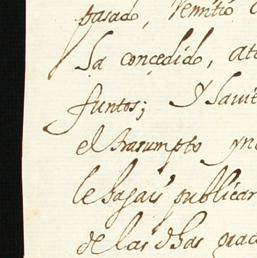 pasado, remitio
Ha concedido, ate
funtos; Y havi
el Trasumpto yn
le hagais publicar
de las dhas grac